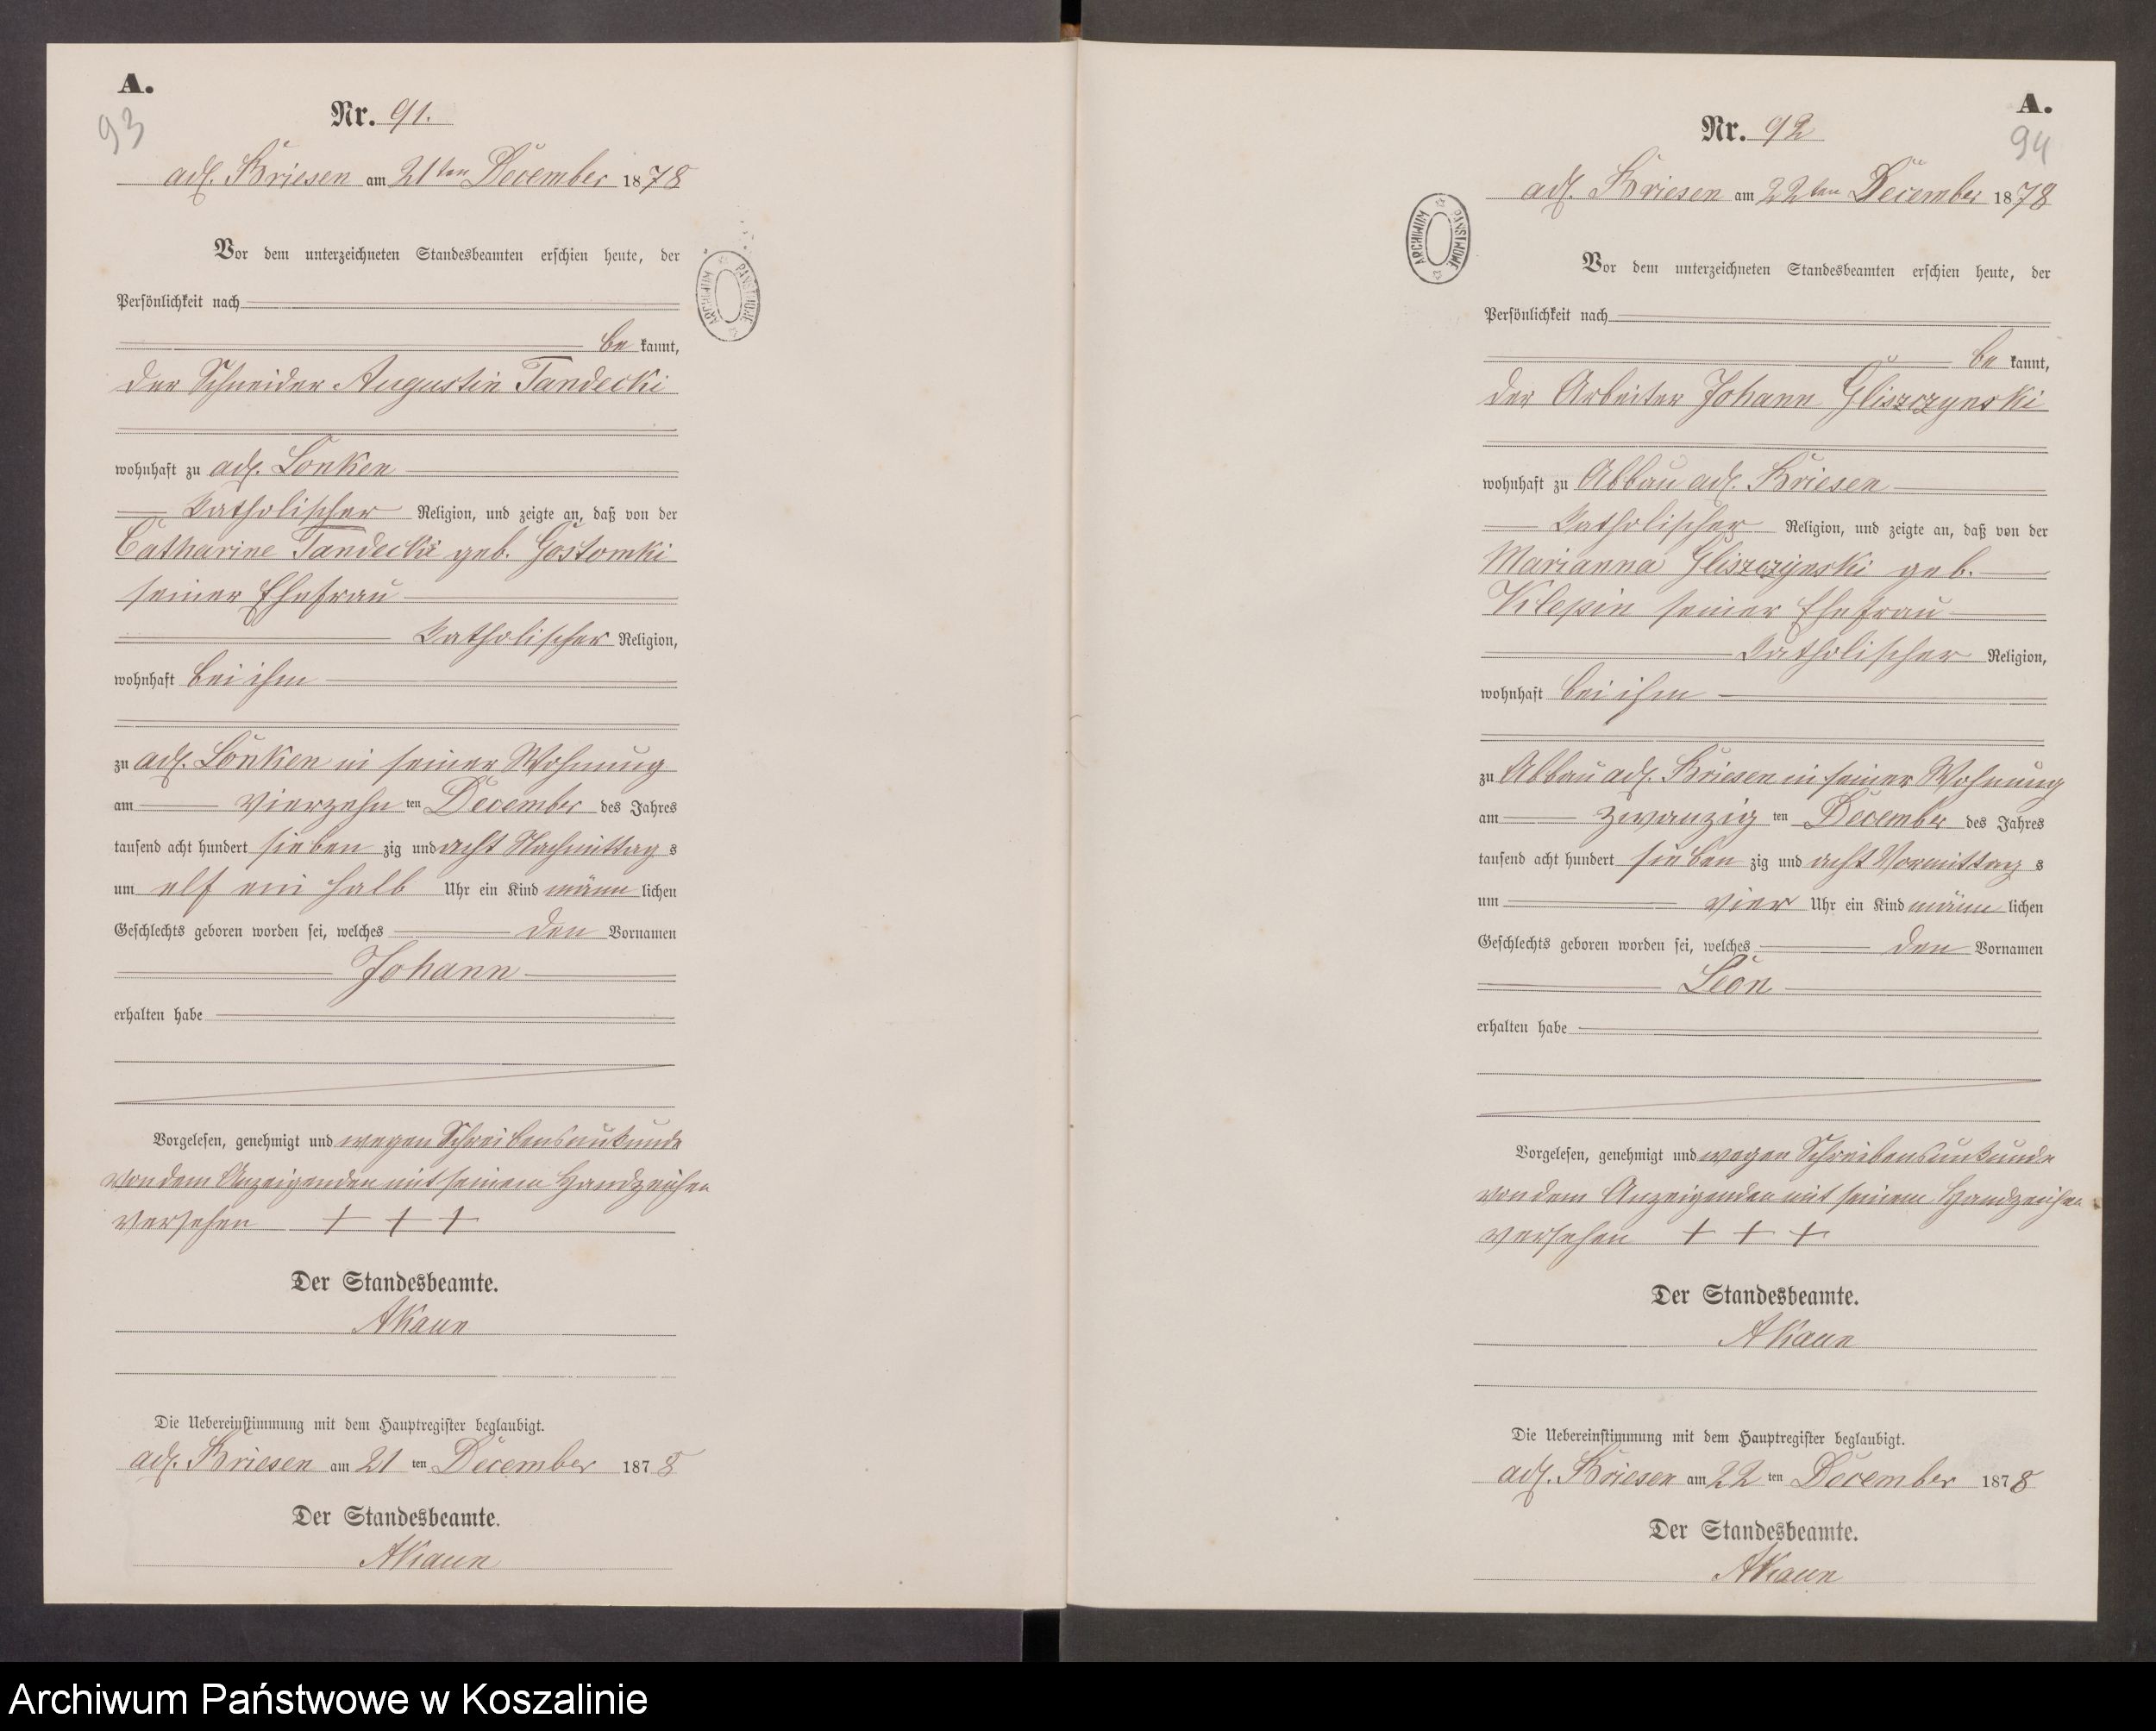 A.
93
Nr. 91.
adl. Briesen am 21ten December 1878
Vor dem unterzeichneten Standesbeamten erschien heute, der
Persönlichkeit nach
be kannt,
der Schneider Augustin Tandecki
wohnhaft zu adl. Lonken
katholischer Religion, und zeigte an, daß von der
Catharine Tandecki geb. Gostomki
seiner Ehefrau
katholischer Religion,
wohnhaft bei ihm
zu adl. Lonken in seiner Wohnung
am vierzehn ten December des Jahres
tausend acht hundert sieben zig und acht Nachmittag s
um elf ein halb Uhr ein Kind männ lichen
Geschlechts geboren worden sei, welches den Vornamen
Johann
erhalten habe
Vorgelesen, genehmigt und wegen Schreibensunkunde
von dem Anzeigenden mit seinem Handzeichen
versehen + + +
Der Standesbeamte.
AKaun
Die Uebereinstimmung mit dem Hauptregister beglaubigt.
adl. Briesen am 21 ten December 1878
Der Standesbeamte.
AKaun
ARCHIWUM PAŃSTWOWE
A.
94
Nr. 92
adl. Briesen am 22ten December 1878
Vor dem unterzeichneten Standesbeamten erschien heute, der
Persönlichkeit nach
be kannt,
der Arbeiter Johann Gliszczynski
wohnhaft zu Abbau adl. Briesen
katholischer Religion, und zeigte an, daß von der
Marianna Gliszczynski geb.
Klepin seiner Ehefrau
katholischer Religion,
wohnhaft bei ihm
zu Abbau adl. Briesen in seiner Wohnung
am zwanzig ten December des Jahres
tausend acht hundert sieben zig und acht Vormittag s
um vier Uhr ein Kind männ lichen
Geschlechts geboren worden sei, welches den Vornamen
Leon
erhalten habe
Vorgelesen, genehmigt und wegen Schreibensunkunde
von dem Anzeigenden mit seinem Handzeichen
versehen + + +
Der Standesbeamte.
AKaun
Die Uebereinstimmung mit dem Hauptregister beglaubigt.
adl. Briesen am 22 ten December 1878
Der Standesbeamte.
AKaun
ARCHIWUM PAŃSTWOWE
Archiwum Państwowe w Koszalinie